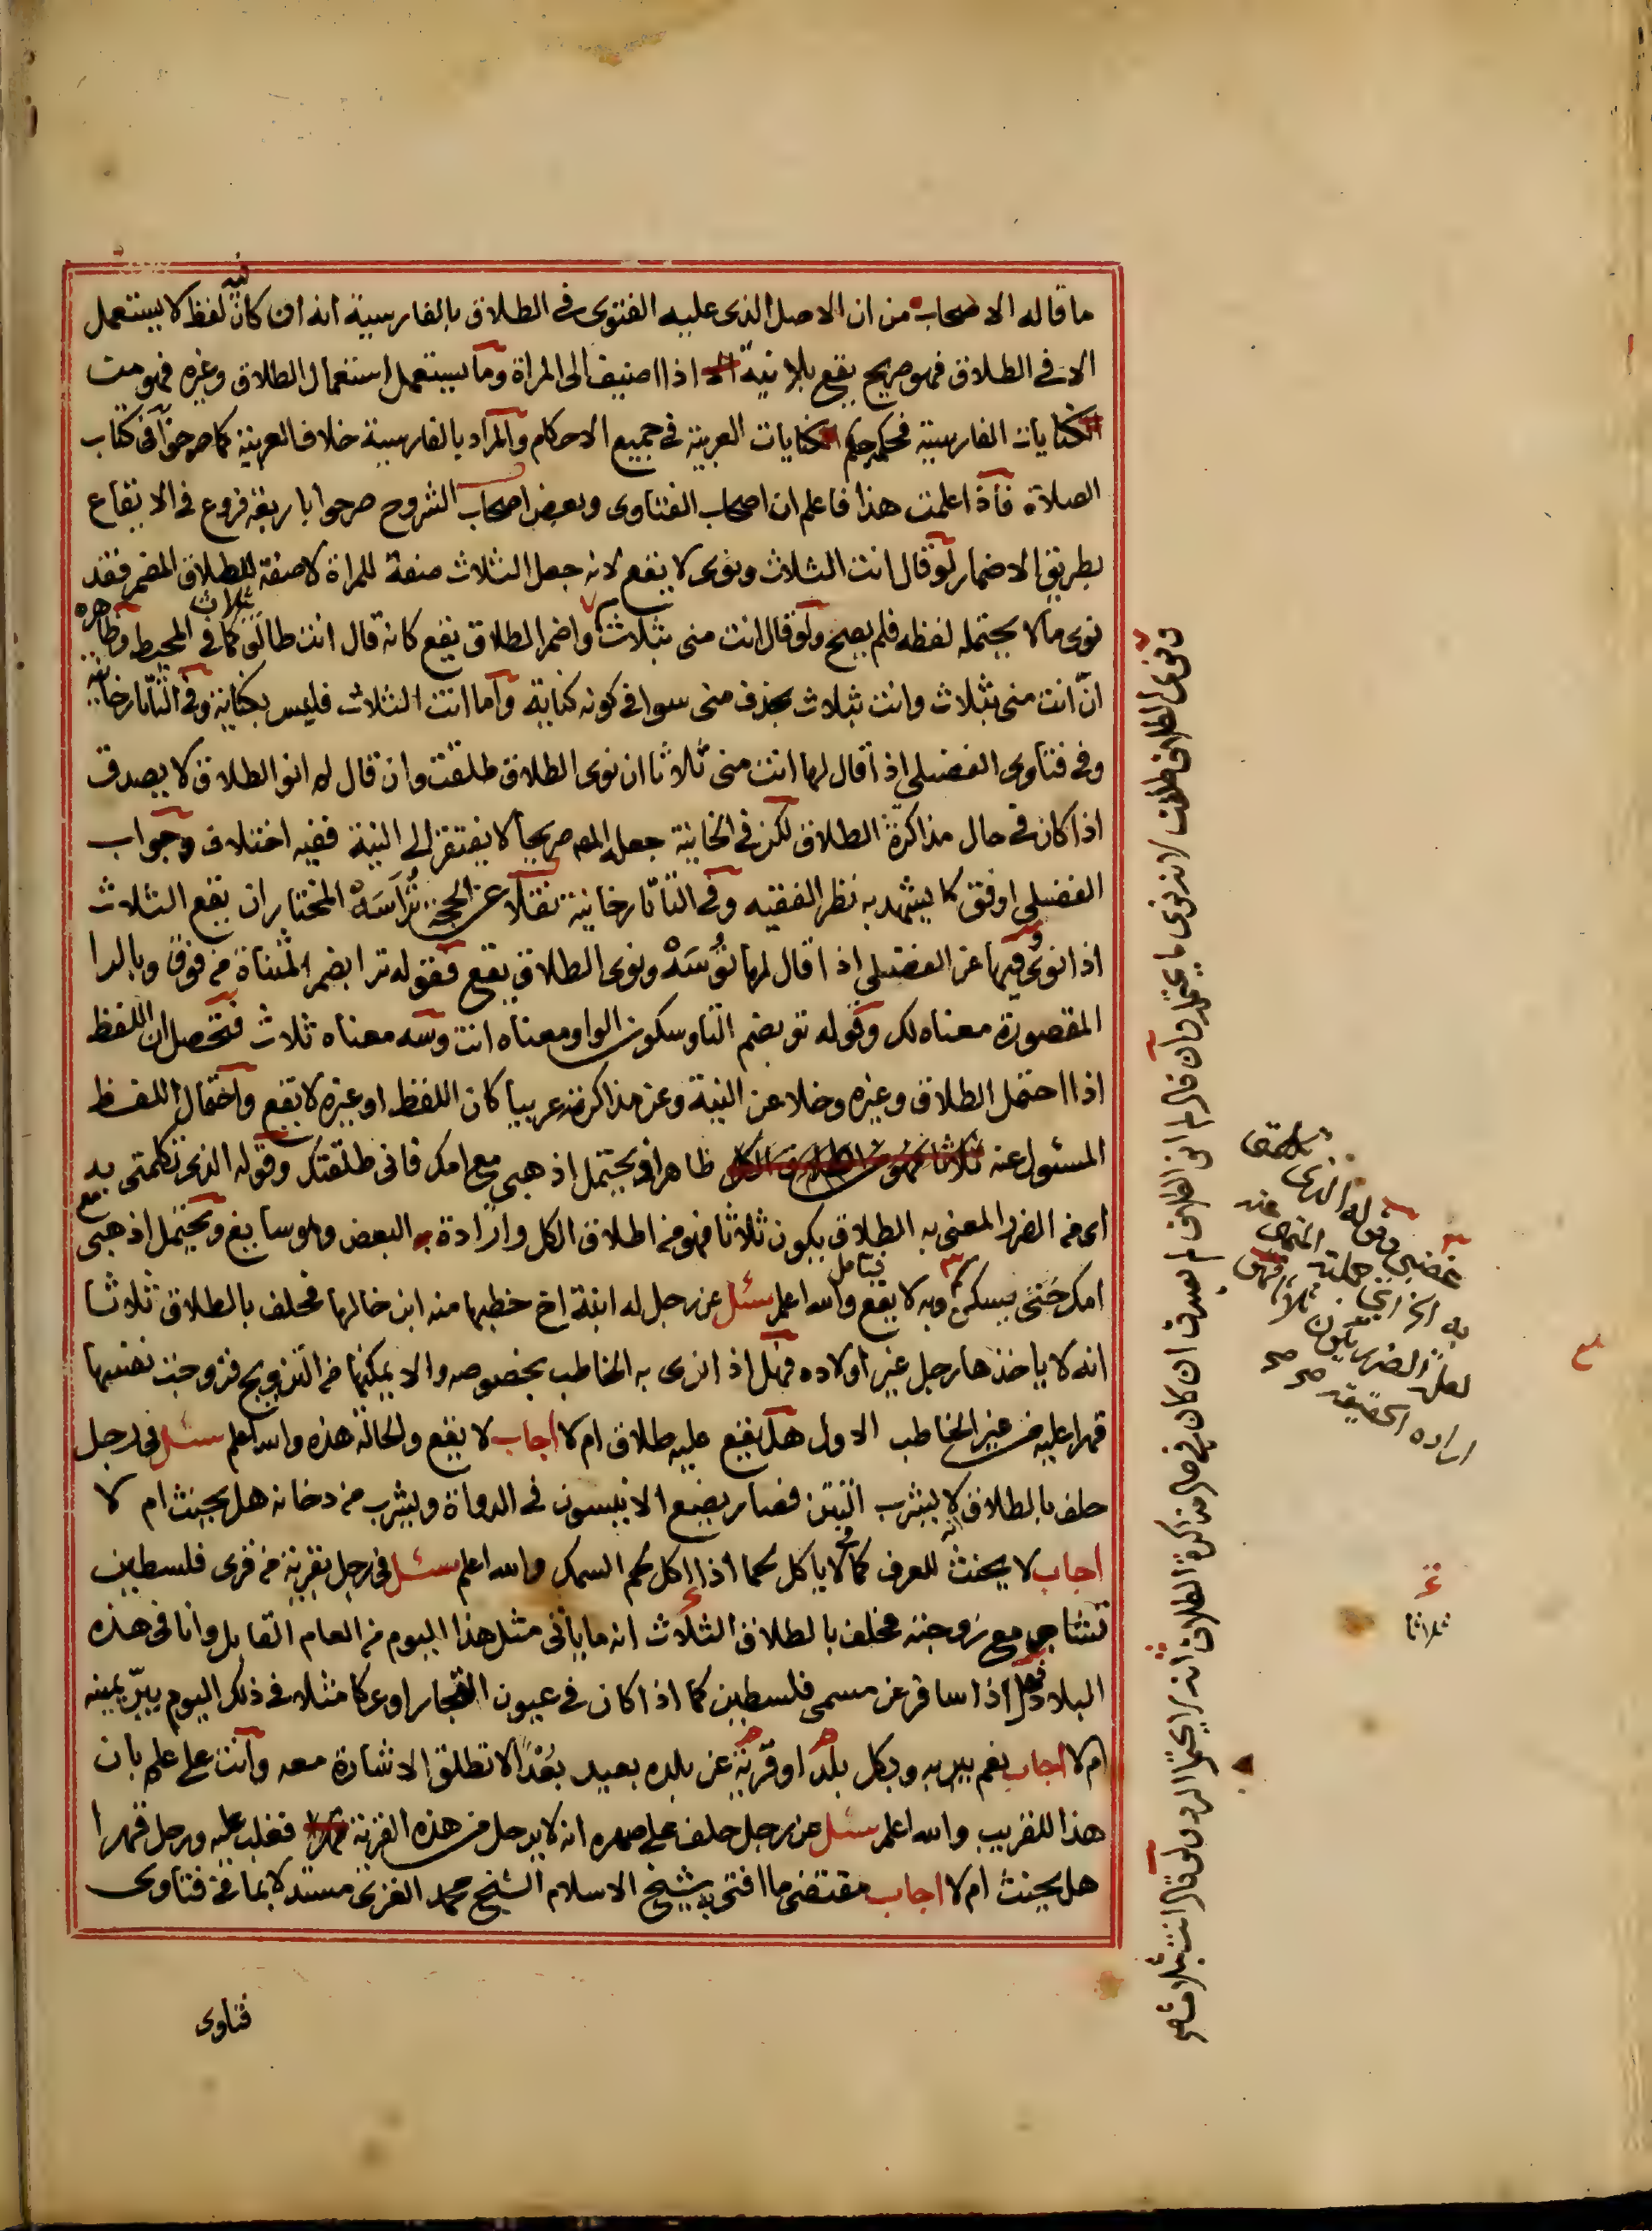 ما قاله الاصحاب من ان الاصل الذى عليه الفتوى فى الطلاق بالفارسية انه ان كان فيه لفظ لا يستعمل
الا فى الطلاق فهو صريح يقع بلا نية اذا اضيف الى المراة وما يستعمل استعمال الطلاق وغيره فهو من
كنايات الفارسية فحكمه حكم كنايات العربية فى جميع الاحكام والمراد بالفارسية خلاف العربية كما صرحوا فى كتاب
الصلاة فاذا علمت هذا فاعلم ان اصحاب الفتاوى وبعض اصحاب الشروح صرحوا باربعة فروع فى الايقاع
بطريق الاضمار لو قال انت الثلاث ونوى لا يقع لانه جعل الثلاث صفة للمراة لا صفة للطلاق المضمر فقد
نوى ما لا يحتمله لفظه فلم يصح ولو قال انت منى بثلاث واضمر الطلاق يقع كانه قال انت طالق بثلاث كما فى المحيط وظاهره
ان انت منى بثلاث وانت بثلاث بحذف منى سوا فى كونه كناية واما انت الثلاث فليس بكناية وفى التاتارخانية
وفى فتاوى الفضلى اذا قال لها انت منى ثلاثا ان نوى الطلاق طلقت وان قال لم انو الطلاق لا يصدق
اذا كان فى حال مذاكرة الطلاق لكن فى الخانية جعله المص صريحا لا يفتقر الى النية ففيه اختلاف وجواب
الفضلى اوفق كما يشهد به نظر الفقيه وفى التاتارخانية نقلا عن الحجة تُرَاسَهْ المختار ان يقع الثلاث
اذا نوى وفيها عن الفضلى اذا قال لها تُوسَهْ ونوى الطلاق يقع فقوله ترا بضم المثناة من فوق وبالرا
المقصورة معناه لك وقوله تو بضم التا وسكون الواو معناه انت وسه معناه ثلاث فتحصل ان اللفظ
اذا احتمل الطلاق وغيره وخلا عن النية وعن مذاكرته عربيا كان اللفظ او غيره لا يقع واحتمال اللفظ
المسئول عنه ظاهر او يحتمل اذهبى مع امك فانى طلقتك وقوله الذى تكلمتى به
اى من الضرر المعنى به الطلاق يكون ثلاثا فهو من اطلاق الكل وارادة البعض وهو سايغ ويحتمل اذهبى مع
امك حتى يسكن وبه لا يقع فتامل والله اعلم سئل عن رجل له ابنة اخ خطبها منه ابن خالها فحلف بالطلاق ثلاثا
انه لا ياخذها رجل غير اولاده فهل اذ انزى به الخاطب بخصوصه والا يمكنها من التزويج فزوجت نفسها
قهرا عليه من غير الخاطب الاول هل يقع عليه طلاق ام لا اجاب لا يقع والحالة هذه والله اعلم سئل فى رجل
حلف بالطلاق انه لا يشرب التتن فصار يضع الانيسون فى الدواة ويشرب من دخانه هل يحنث ام لا
اجاب لا يحنث للعرف كما لا ياكل لحما اذا اكل لحم السمك والله اعلم سئل فى رجل بقرية من قرى فلسطين
تشاجر مع زوجته فحلف بالطلاق الثلاث انه ما ياتى مثل هذا اليوم من العام القابل وانا فى هذه
البلاد فهل اذا سافر عن مسمى فلسطين كما اذا كان فى عيون التجار او عكا مثلا فى ذلك اليوم يبرّ يمينه
ام لا اجاب نعم يبر به وبكل بلد او قرية عن بلده بعيد بُعْدًا لا تطلق الاشارة معه وانت على علم بان
هذا للقريب والله اعلم سئل عن رجل حلف على صهره انه لا يرحل من هذه القرية فغلب عليه ورحل قهرا
هل يحنث ام لا اجاب مقتضى ما افتى به شيخ الاسلام الشيخ محمد الغزى مستدلا بما فى فتاوى
فتاوى
ونوى الطلاق طلقت لانه نوى ما يحتمله وان قال لم انو الطلاق لم يصدق ان كان فى حال مذاكرة الطلاق لانه لا يحتمل الرد ولو قال انت بثلاث
غضبى وقوله الذى تكلمتى
به الخ
لعل الضرر يكون ثلاثا
ارادة الحقيقة صح صح
ثلاثا